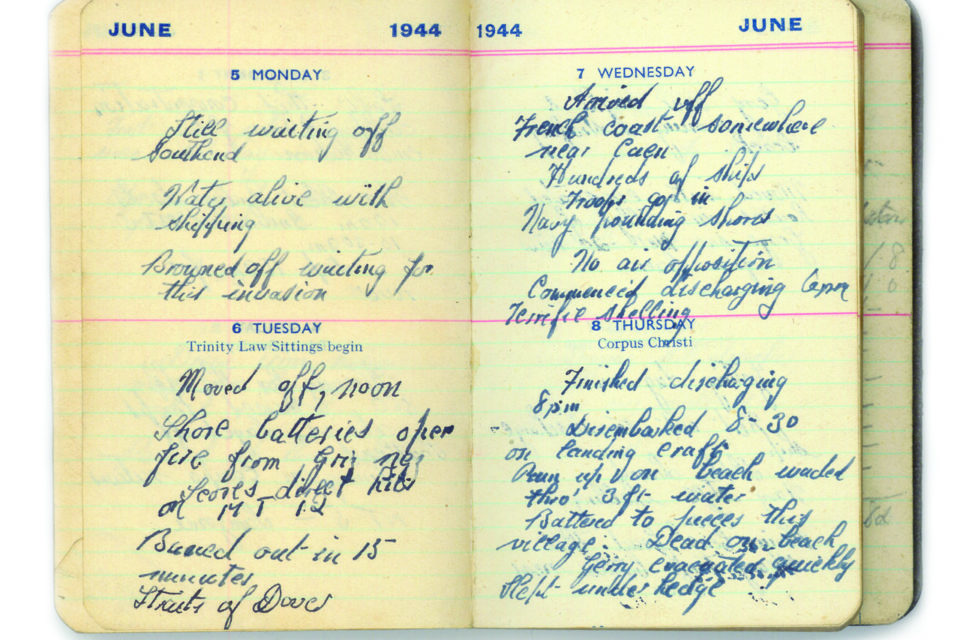 JUNE 1944
5 MONDAY
Still waiting off
Southend
Water alive with
shipping
Browned off waiting for
this invasion
6 TUESDAY
Trinity Law Sittings begin
Moved off, noon
Shore batteries open
fire from Gris nez
Scores direct hits
on M T 12
Burned out in 15
minutes
Straits of Dover
1944 JUNE
7 WEDNESDAY
Arrived off
French coast somewhere
near Caen
Hundreds of ships
Troops go in
Navy pounding shores
No air opposition
Commenced discharging 6pm
Terrific shelling
8 THURSDAY
Corpus Christi
Finished discharging
8pm
Disembarked 8-30
on landing craft
Run up on beach waded
thro' 3 ft water
Battered to pieces this
village. Dead on beach
Gerry evacuated quickly
Slept under hedge